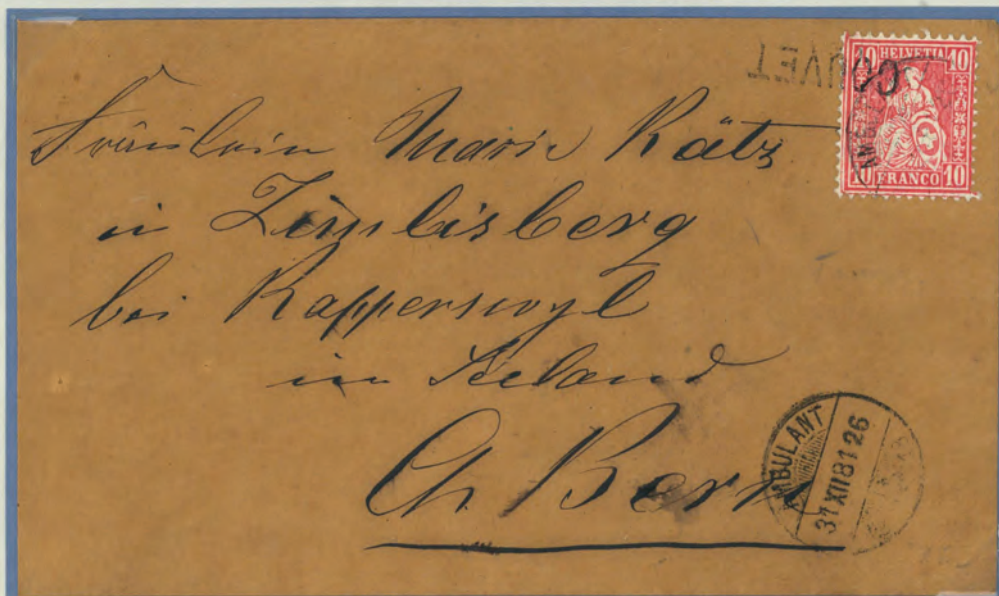 COUVET
10 HELVETIA 10
10 FRANCO 10
Fräulein Marie Rätz
in Zimlisberg
bei Rapperswyl
im Seeland
Ct. Bern
AMBULANT
31 XII 81 26